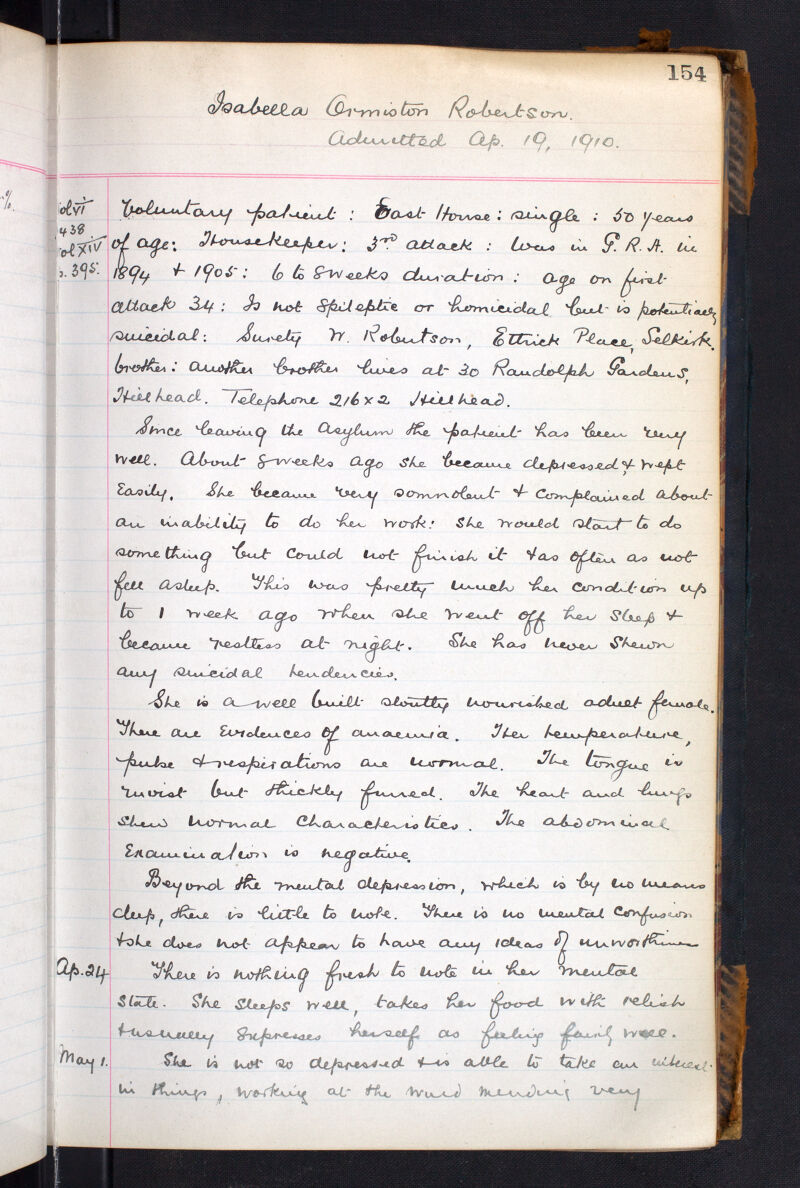 154
Isabella Ormiston Robertson.
Admitted Ap. 19, 1910.
%.
Vol VI
438
Vol XIV
p. 395.
Voluntary patient : East House : single : 50 years
of age : Housekeeper : 3rd attack : Was in G. R. A. in
1894 + 1905 : 6 to 8 weeks duration : age on first
attack 34 : Is not Epileptic or homicidal but is potentially
suicidal : Surety W. Robertson, Ettrick Place, Selkirk.
brother : another brother lives at 30 Randolph Gardens,
Hillhead. Telephone 216x2 Hillhead.
Since leaving the Asylum the patient has been very
well. About 8 weeks ago she became depressed, & wept
Easily. She became very somnolent & complained about
an inability to do her work : she would start to do
something but could not finish it & as often as not
fell asleep. This was pretty much her condition up
to 1 week ago when she went off her sleep &
became restless at night. She has never shewn
any suicidal tendencies.
She is a well built stoutly nourished adult female.
There are Evidences of anaemia. Her temperature,
pulse & respirations are normal. The tongue is
moist but thickly furred. The heart and lungs
shew normal characteristics. The abdominal
Examination is negative.
Beyond the mental depression, which is by no means
deep, there is little to note. There is no mental confusion
& she does not appear to have any ideas of unworthiness
Ap. 24 There is nothing fresh to note in her mental
state. She sleeps well, takes her food with relish
& usually Expresses herself as feeling fairly well.
May 1. She is not so depressed & is able to take an interest
in things, working at the ward mending very